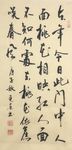 去年今日此门中人
面桃花相映红人面
不知何处去桃花依旧
笑春风